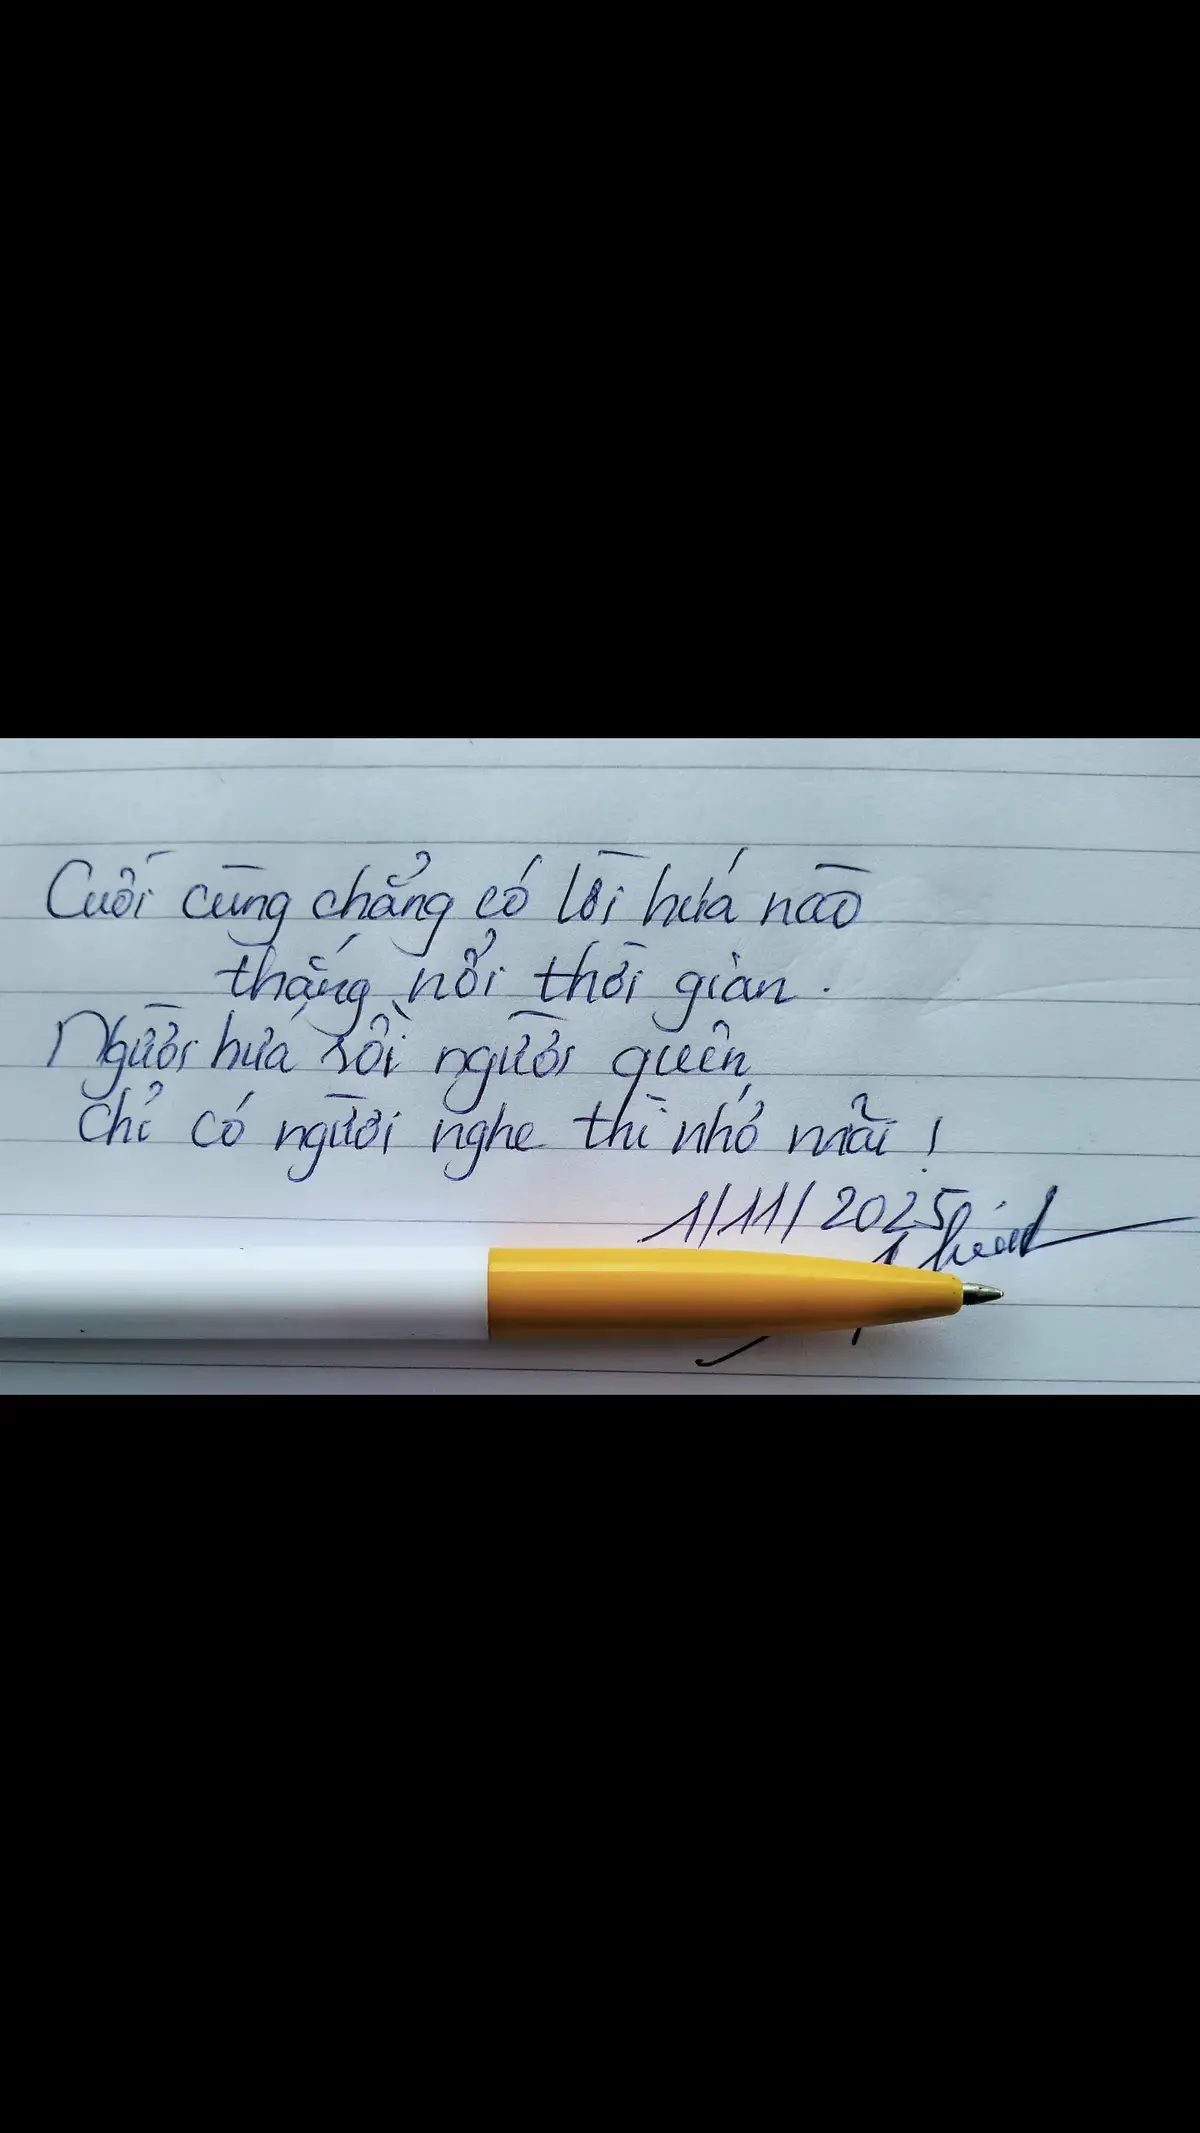 Cuối cùng chẳng có lời hứa nào
thắng nổi thời gian.
Người hứa rồi người quên
Chỉ có người nghe thì nhớ mãi!
1/11/2025